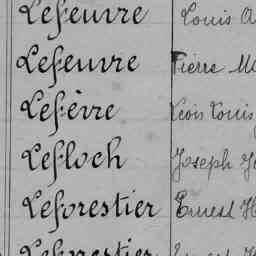 Lefeuvre Louis A
Lefeuvre Pierre Ma
Lefèvre Louis
Lefloch Joseph
Leforestier Ernest H
Leforestier